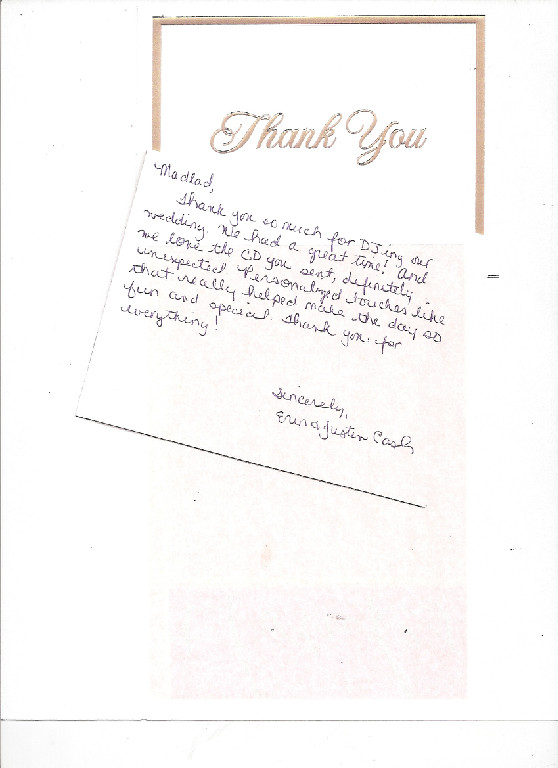 Thank You
Madlad,
Thank you so much for DJing our
wedding. We had a great time! And
we love the CD you sent, definitely
unexpected. Personalized touches like
that really helped make the day so
fun and special. Thank you for
everything!
Sincerely,
Erin & Justin Cash